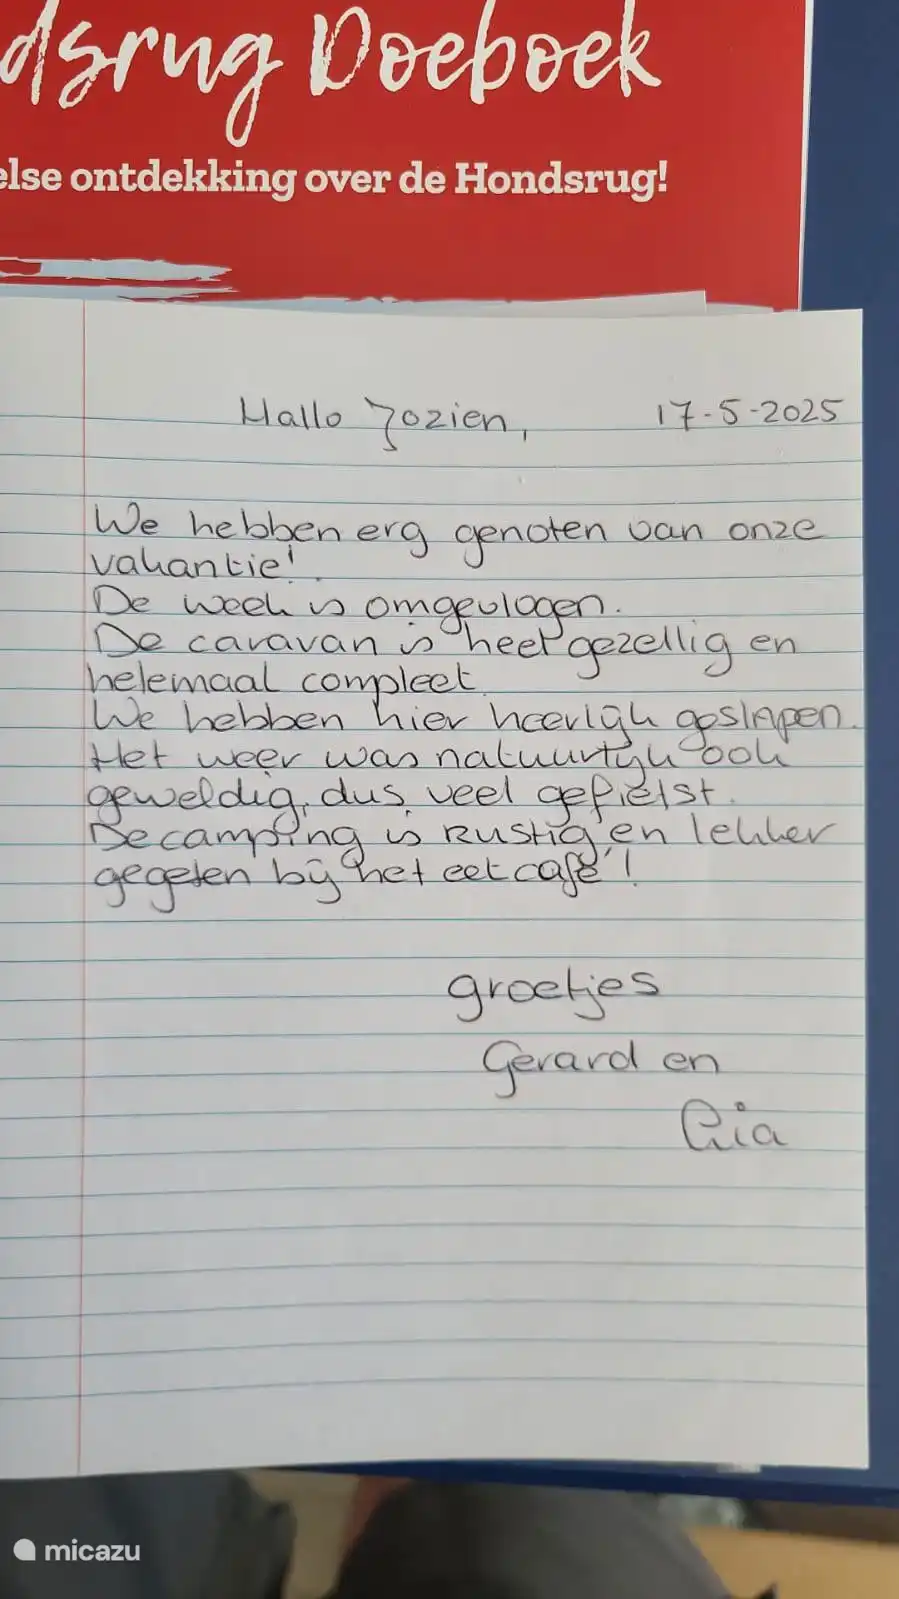 dsrug Doeboek
else ontdekking over de Hondsrug!
Hallo Jozien, 17-5-2025
We hebben erg genoten van onze
vakantie!
De week is omgevlogen.
De caravan is heel gezellig en
helemaal compleet.
We hebben hier heerlijk geslapen.
Het weer was natuurlijk ook
geweldig, dus veel gefietst.
De camping is Rustig en lekker
gegeten bij het eetcafé!
groetjes
Gerard en
Ria
micazu